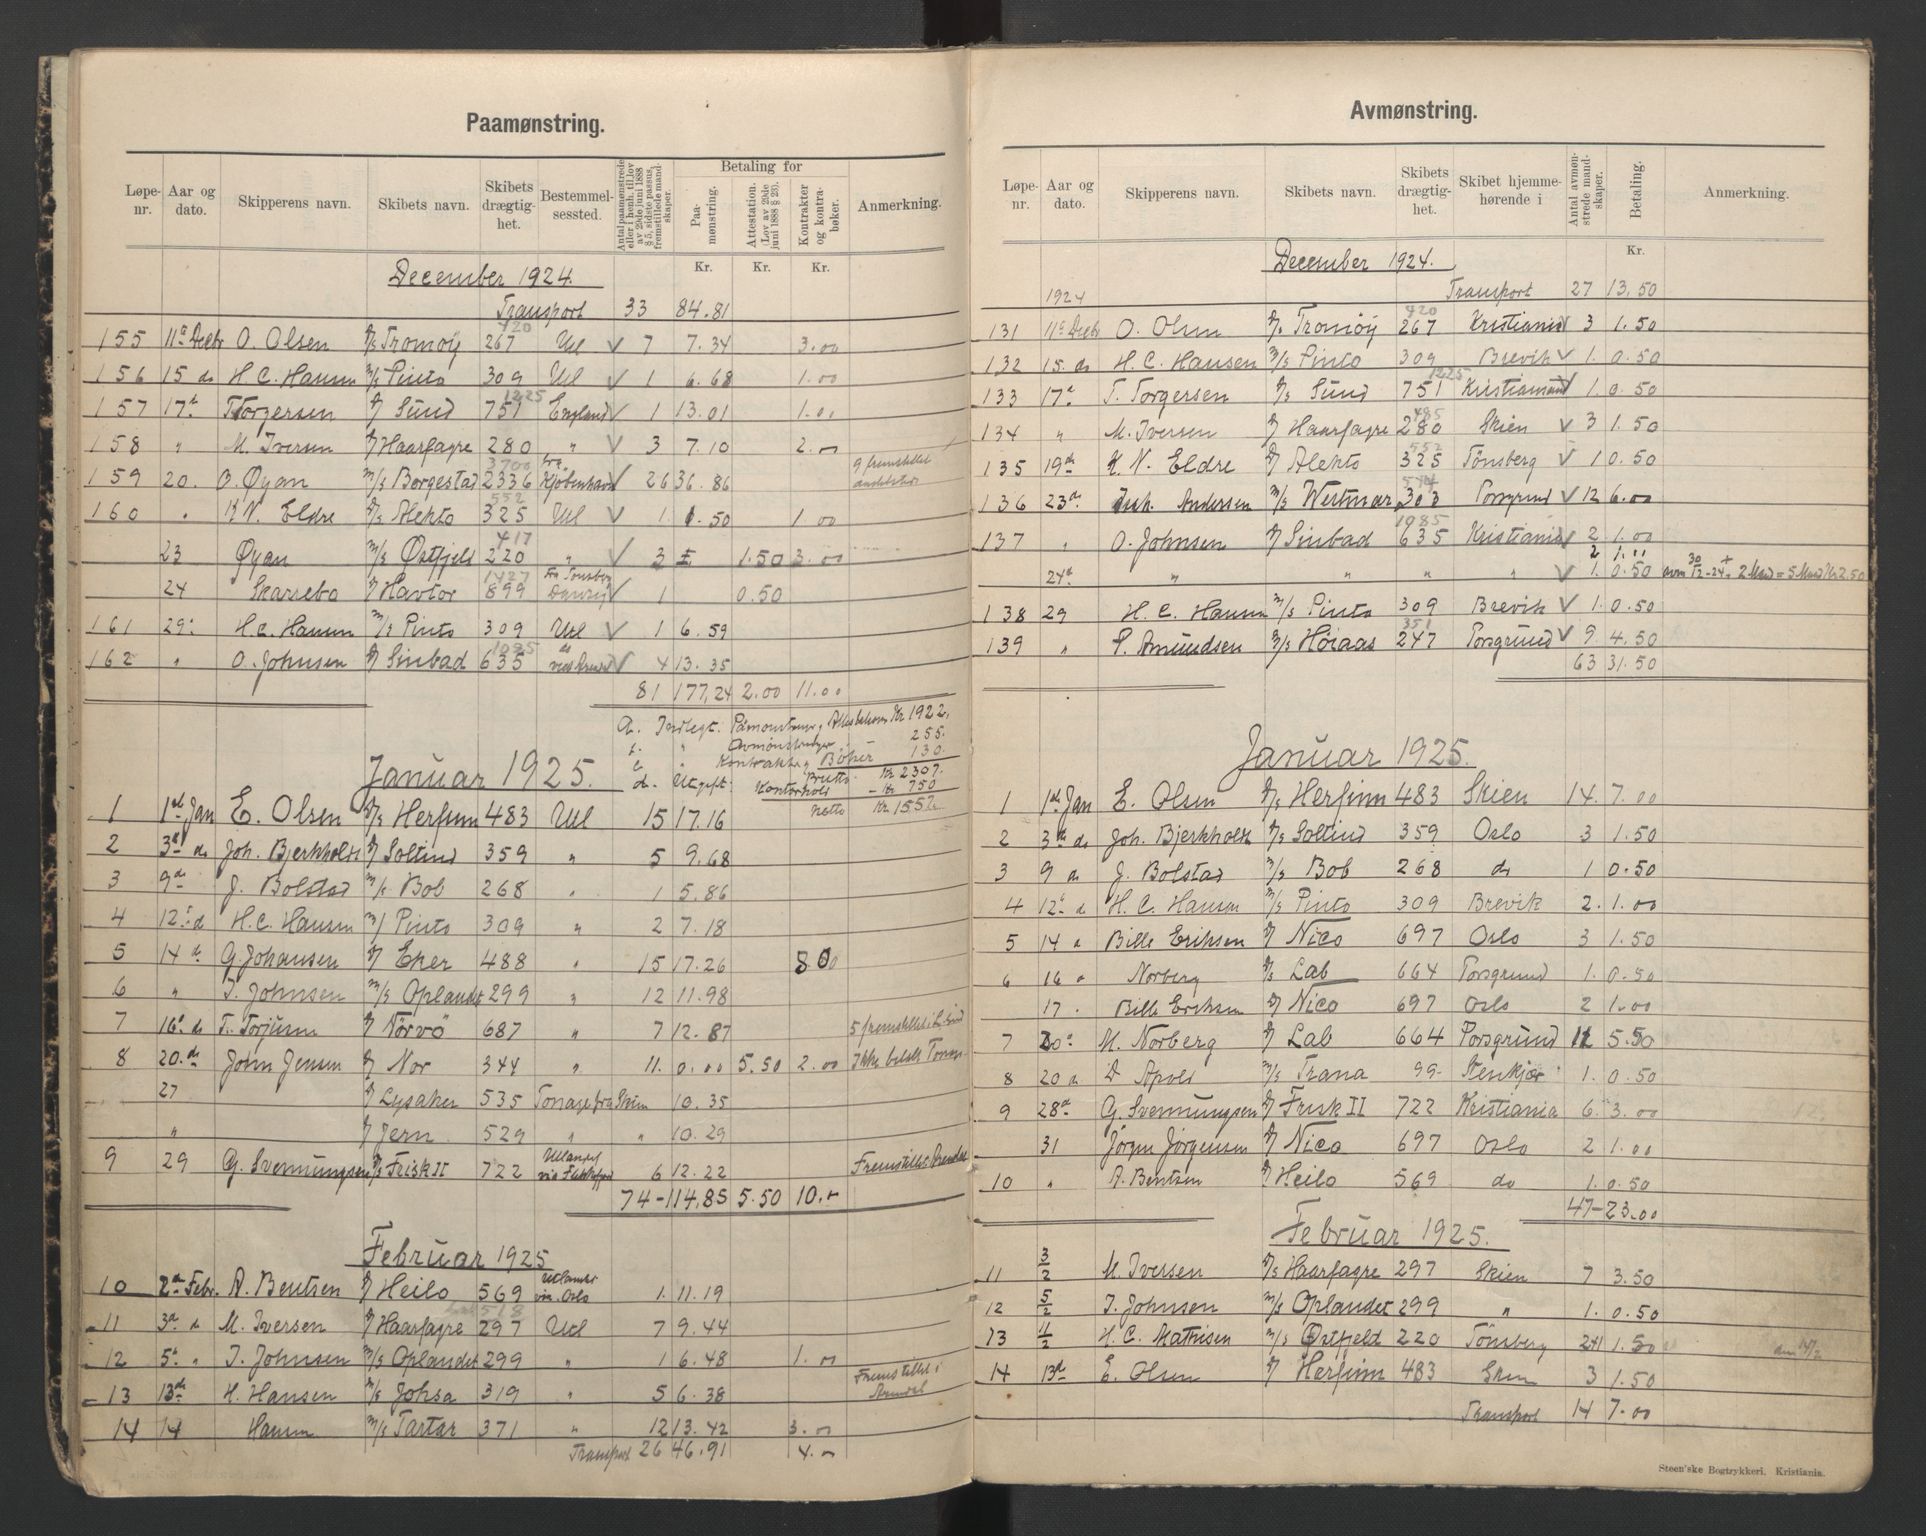 Paamønstring.
Løpe-nr. Aar og dato. Skipperens navn. Skibets navn. Skibets drægtig-het. Bestemmel-sessted. Antal paamønstrede eller i henh. til lov av 20de juni 1888 § 5, sidste passus, fremstillede mand-skaper. Betaling for Paa-mønstring. Attestation. (Lov av 20de juni 1888 § 23). Kontrakter og kontra-bøker. Anmerkning.
Kr. Kr. Kr.
December 1924.
Transport 33 84.81
420
155 11te Decbr O. Olsen D/S Tromøy 267 Utl V 7 7.34 3.00
156 15 do H. C. Hansen M/S Pinto 309 Utl V 1 6.68 1.00
1225
157 17de T. Torgersen D/ Sund 751 England V 1 13.01 1.00
158 " M. Iversen D/ Haarfagre 280 " V 3 7.10 2.00
3700 fra
159 20. O. Øyan M/S Borgestad 2336 Kjøbenhavn V 26 36.86 9 fremstillet
552
160 " K N. Eldre D/S Alekto 325 Utl V 1. 1.50 1.00
417
23 Øyan M/S Østfjeld 220 " V 3 1.50 3.00
1427 Fra Tønsberg
24 Skarsebo D/ Havtor 899 Danzig V 1 0.50
161 29. H. C. Hansen M/S Pinto 309 Utl V 1 6.59
1085 do
162 " O. Johnsen D/ Sinbad 635 V 4 13.35
81 177,24 2.00 11.00
a. Indtegt. Påmønstringer, Attestationer Kr 1922.
" Avmønstringer - 255.
c " Kontrakter, Bøker 130.
Brutto Kr 2307.
d. Utgift: Kontorhold - Kr 750
Netto Kr 1557.
Januar 1925.
1 1ste Jan E. Olsen D/S Herfinn 483 Utl 15 17.16
2 3de do Joh. Bjerkholdt D/ Soltind 359 " 5 9.68
3 9de J. Bolstad M/S Bob 268 " 1 5.86
4 12te d H. C. Hansen M/ Pinto 309 " 2 7.18
5 14 de G. Johansen D/ Eker 488 " 15 17.26 5 00
6 " J. Johnsen M/S Oplandet 299 " 12 11.98
7 16de do T. Torjusen D/ Nörvö 687 " 7 12.87 5 fremstillet i
8 20.de John Jensen D/ Nor 344 " 11. 0.00 5.50 2.00 Ikke betalt
27 D/ Lysaker 535 Tonage fra Skien 10.35
" D/ Jern 529 " " 10.29
Utlandet
9 29 G. Svennungsen D/S Frisk II 722 via Flekkefjord 6 12.22 Fremstillet Arendal
74 - 114,85 5.50 10.-
Februar 1925
Utlandet
10 2de Febr. A. Bentsen D/ Heilo 569 via Oslo 1. 11.19
518
11 3de d M. Iversen D/ Haarfagre 297 Utl 7 9.44
12 5te " J. Johnsen M/S Oplandet 299 " 1 6.48 1.00
13 13de H. Hansen M/S Johsa 319 " 5 6.38 Fremstillet i Arendal
14 14 Hansen M/S Tartar 371 " 12 13.42 3.00
Transport 26 46.91 4.-
Avmønstring.
Løpe-nr. Aar og dato. Skipperens navn. Skibets navn. Skibets drægtig-het. Skibet hjemme-hørende i Antal avmøn-strede mand-skaper. Betaling. Anmerkning.
Kr.
December 1924.
1924 Transport 27 13.50
420
131 11te Decbr O. Olsen D/S Tromöy 267 Kristiania V 3 1.50
132 15. do H. C. Hansen M/S Pinto 309 Brevik V 1. 0.50
1225
133 17de T. Torgersen D/S Sund 751 Kristiansund V 1. 0.50
485
134 " M. Iversen D/ Haarfagre 280 Skien V 3 1.50
552
135 19de K. N. Eldre D/ Alekto 325 Tönsberg V 1 0.50
514
136 23de Andersen M/S Vestmar 303 Porsgrund V 12 6.00
1085
137 " O. Johnsen D/ Sinbad 635 Kristiania V 2 1.00
2 1.00
24de " " " " V 1. 0.50 avm 30/12 - 24 + 2 Mand = 5 Mand Kr 2.50
138 29 H. C. Hansen M/S Pinto 309 Brevik V 1. 0.50
351
139 " S. Amundsen M/S Höiaas 247 Porsgrund V 9. 4.50
63 31.50
Januar 1925.
1 1ste Jan E. Olsen D/S Herfinn 483 Skien 14. 7.00
2 3de do Joh. Bjerkholdt D/S Soltind 359 Oslo 3 1.50
3 9 do J. Bolstad M/S Bob 268 do 1 0.50
4 12te d H. C. Hansen M/S Pinto 309 Brevik 2. 1.00
5 14 d Bille Eriksen D/ Nico 697 Oslo 3 1.50
6 16 " Norberg D/S Lab 664 Porsgrund 1. 0.50
17 . Bille Eriksen D/ Nico 697 Oslo 2 1.00
7 20de M. Norberg D/ Lab 664 Porsgrund 11 5.50
8 20 d D Apold M/S Trana 99- Stenkjær 1. 0.50
9 28de G. Svennungsen D/ Frisk II 722 Kristiania 6. 3.00
31 Jörgen Jörgensen D/ Nico 697 Oslo 2 1.00
10 " A. Bentsen D/ Heilo 569 do 1. 0.50
47-23.00
Februar 1925.
11 3/2 M. Iversen D/S Haarfagre 297 Skien 7 3.50
12 5/2 J. Johnsen M/S Oplandet 299 " 1. 0.50
13 11/2 H. C. Mathisen M/S Østfjeld 220 Tönsberg 2+1 1.50 am 14/2
14 13de E. Olsen D/ Herfinn 483 Skien 3 1.50
Transport 14 7.00
Steen'ske Bogtrykkeri. Kristiania.